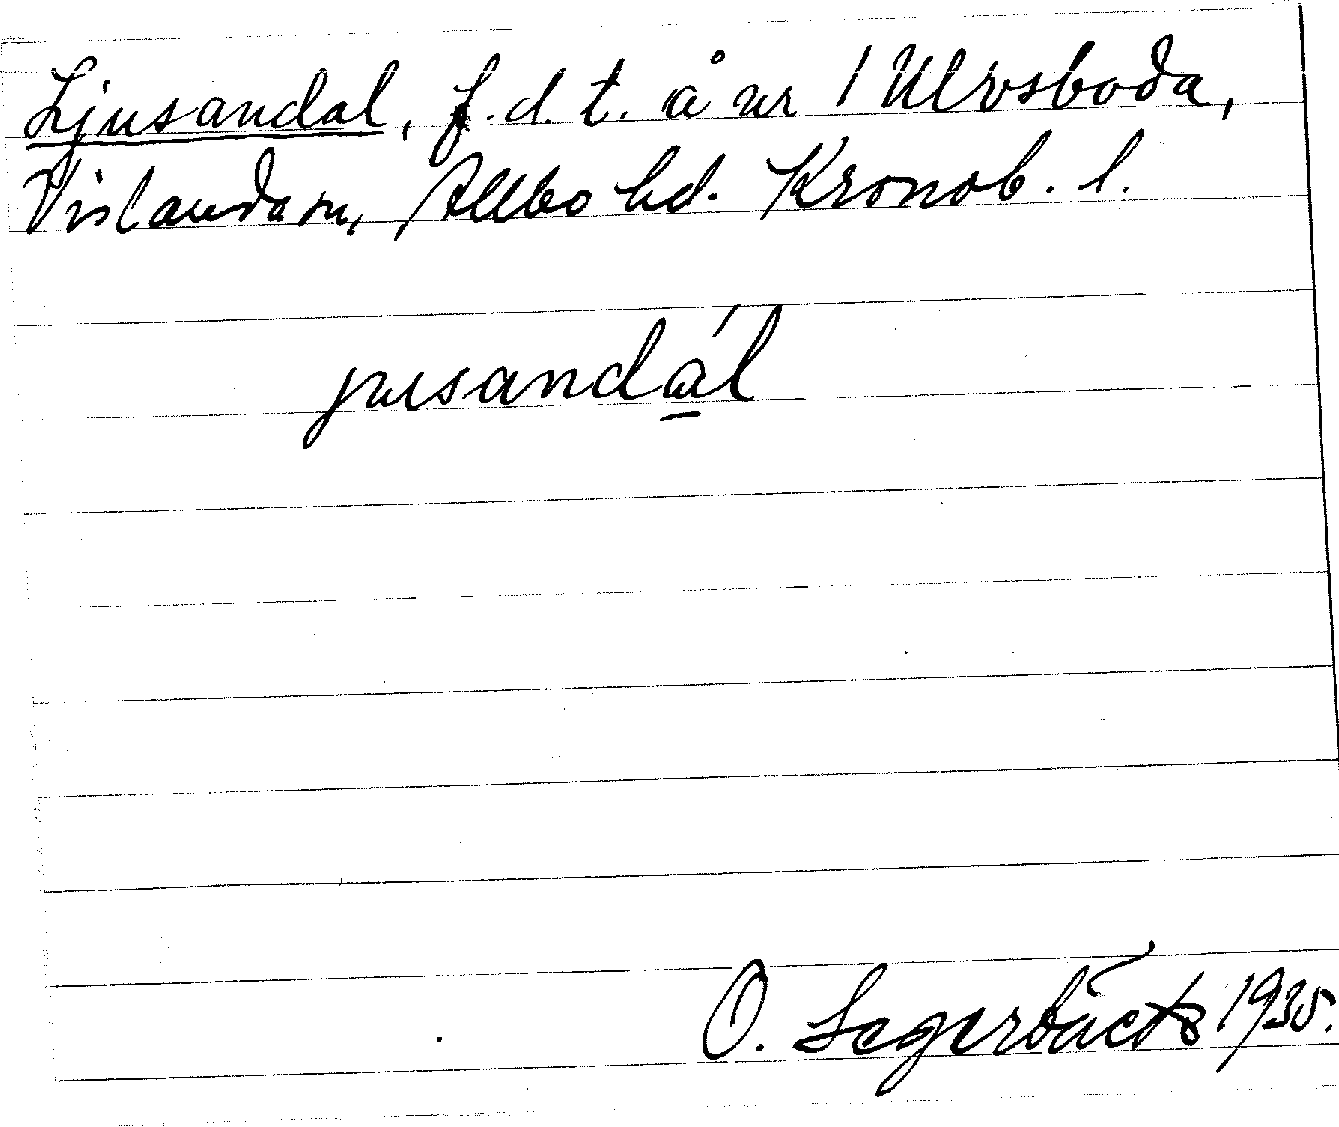 Ljusandal, f.d.t. å nr 1 Ulvsboda,
Vislanda sn, Allbo hd. Kronob. l.
jusandál
O. 1935.